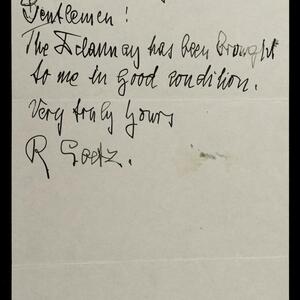 Gentlemen!
The Delaunay has been brought
to me in good condition.
Very truly Yours
R Goetz.